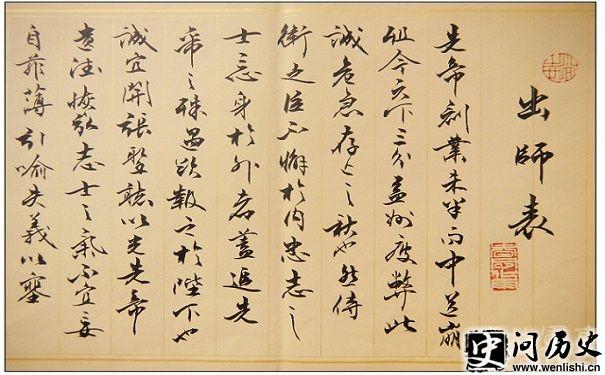 出師表
先帝創業未半而中道崩
殂今天下三分益州疲弊此
誠危急存亡之秋也然侍
衛之臣不懈於內忠志之
士忘身於外者蓋追先
帝之殊遇欲報之於陛下也
誠宜開張聖聽以光先帝
遺德恢弘志士之氣不宜妄
自菲薄引喻失義以塞
史 问历史
www.wenlishi.cn